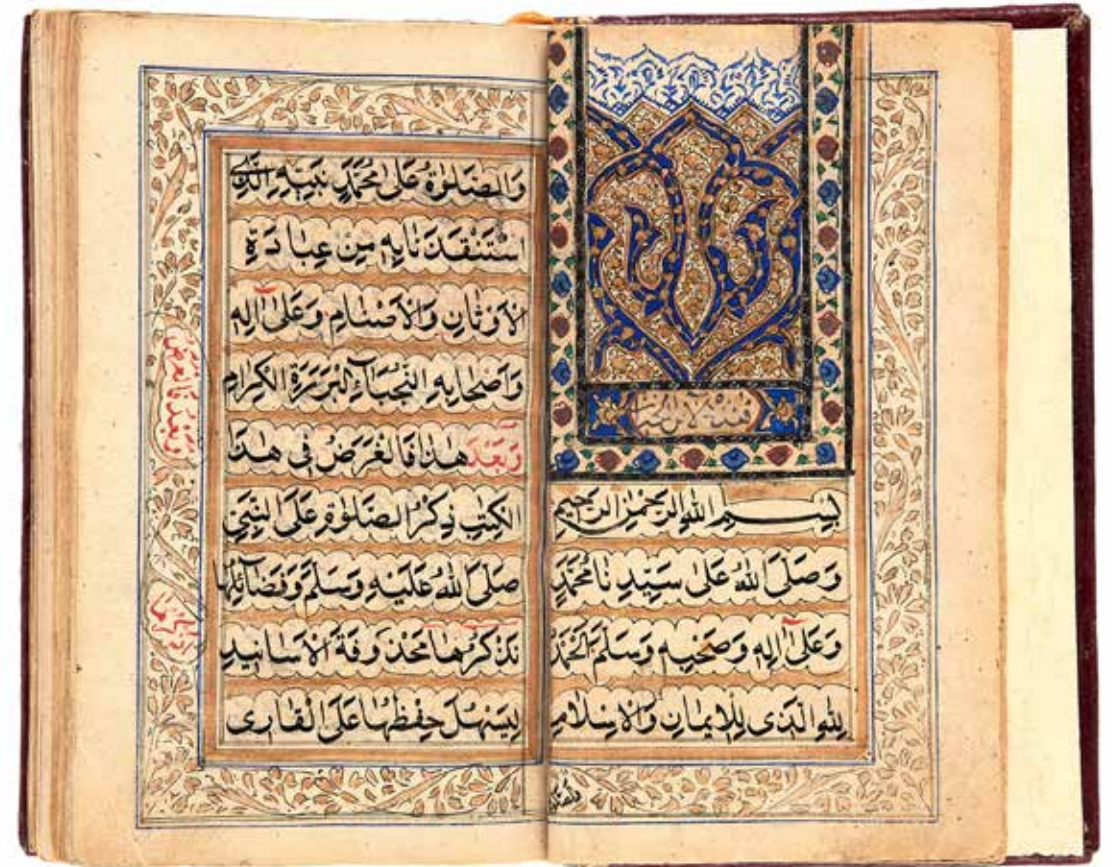 بِسْمِ اللهِ الرَّحْمٰنِ الرَّحِيمِ
وَصَلَّى اللهُ عَلىٰ سَيِّدِنَا مُحَمَّدٍ
وَعَلىٰ اٰلِهٖ وَصَحْبِهٖ وَسَلَّمَ اَلْحَمْدُ
لِلّٰهِ الَّذى لِلْاِيمَانِ وَالْاِسْلَامِ
وَالصَّلٰوةُ عَلىٰ مُحَمَّدٍ نَبِيِّهِ الَّذِى
اسْتَنْقَدَنَا بِهٖ مِنْ عِبَادَةِ
الْاَوْثَانِ وَالْاَصْنَامِ وَعَلىٰ اٰلِهٖ
وَاَصْحَابِهِ النُّجَبَآءِ الْبَرَرَةِ الْكِرَامِ
وَبَعْدَ هٰذَا فَالْغَرَضُ فِى هٰذَا
الْكِتٰبِ ذِكْرُ الصَّلٰوةِ عَلَى النَّبِىِّ
صَلَّى اللهُ عَلَيْهِ وَسَلَّمَ وَفَضَآئِلِهَا
نَذْكُرُهَا مَحْذُوفَةَ الْاَسَانِيدِ
لِيَسْهُلَ حِفْظُهَا عَلَى الْقَارِى